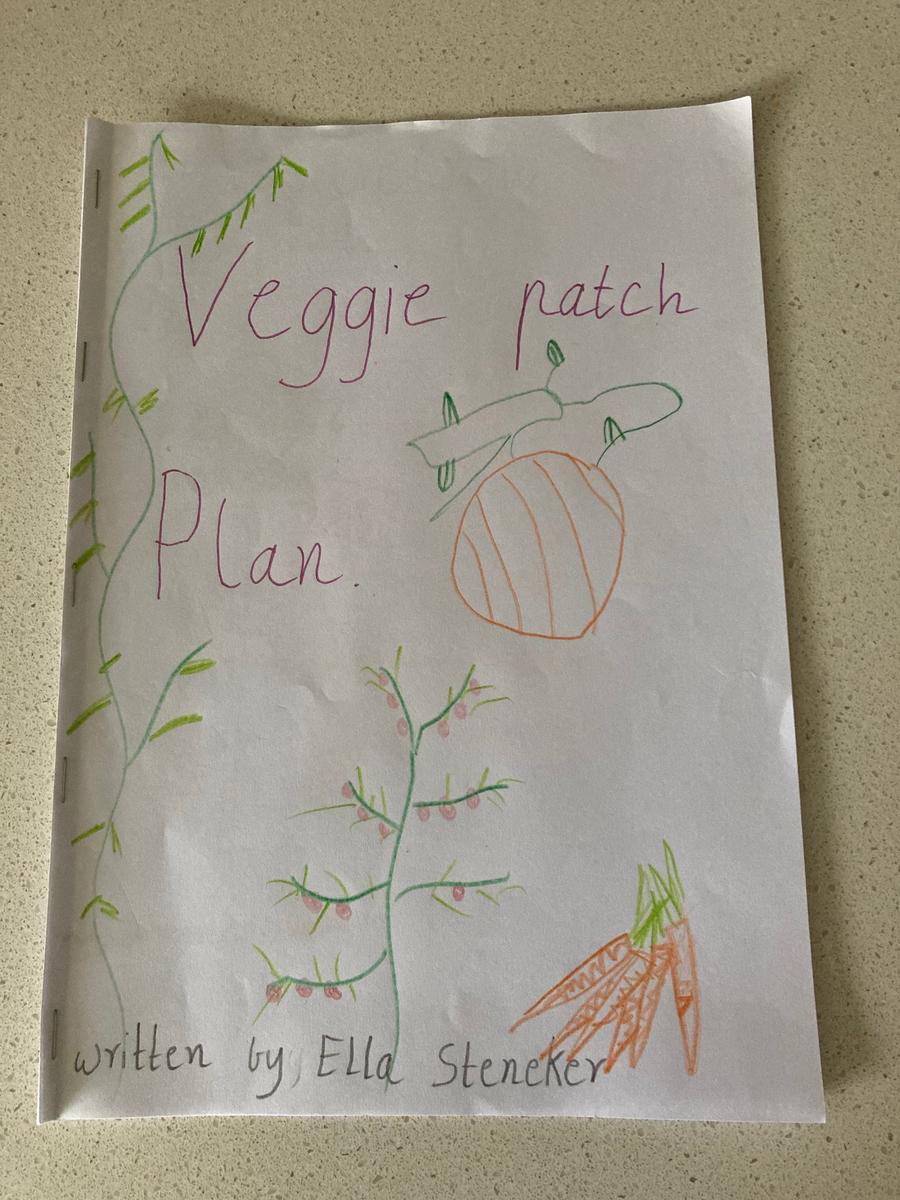 Veggie patch
Plan.
written by Ella Steneker